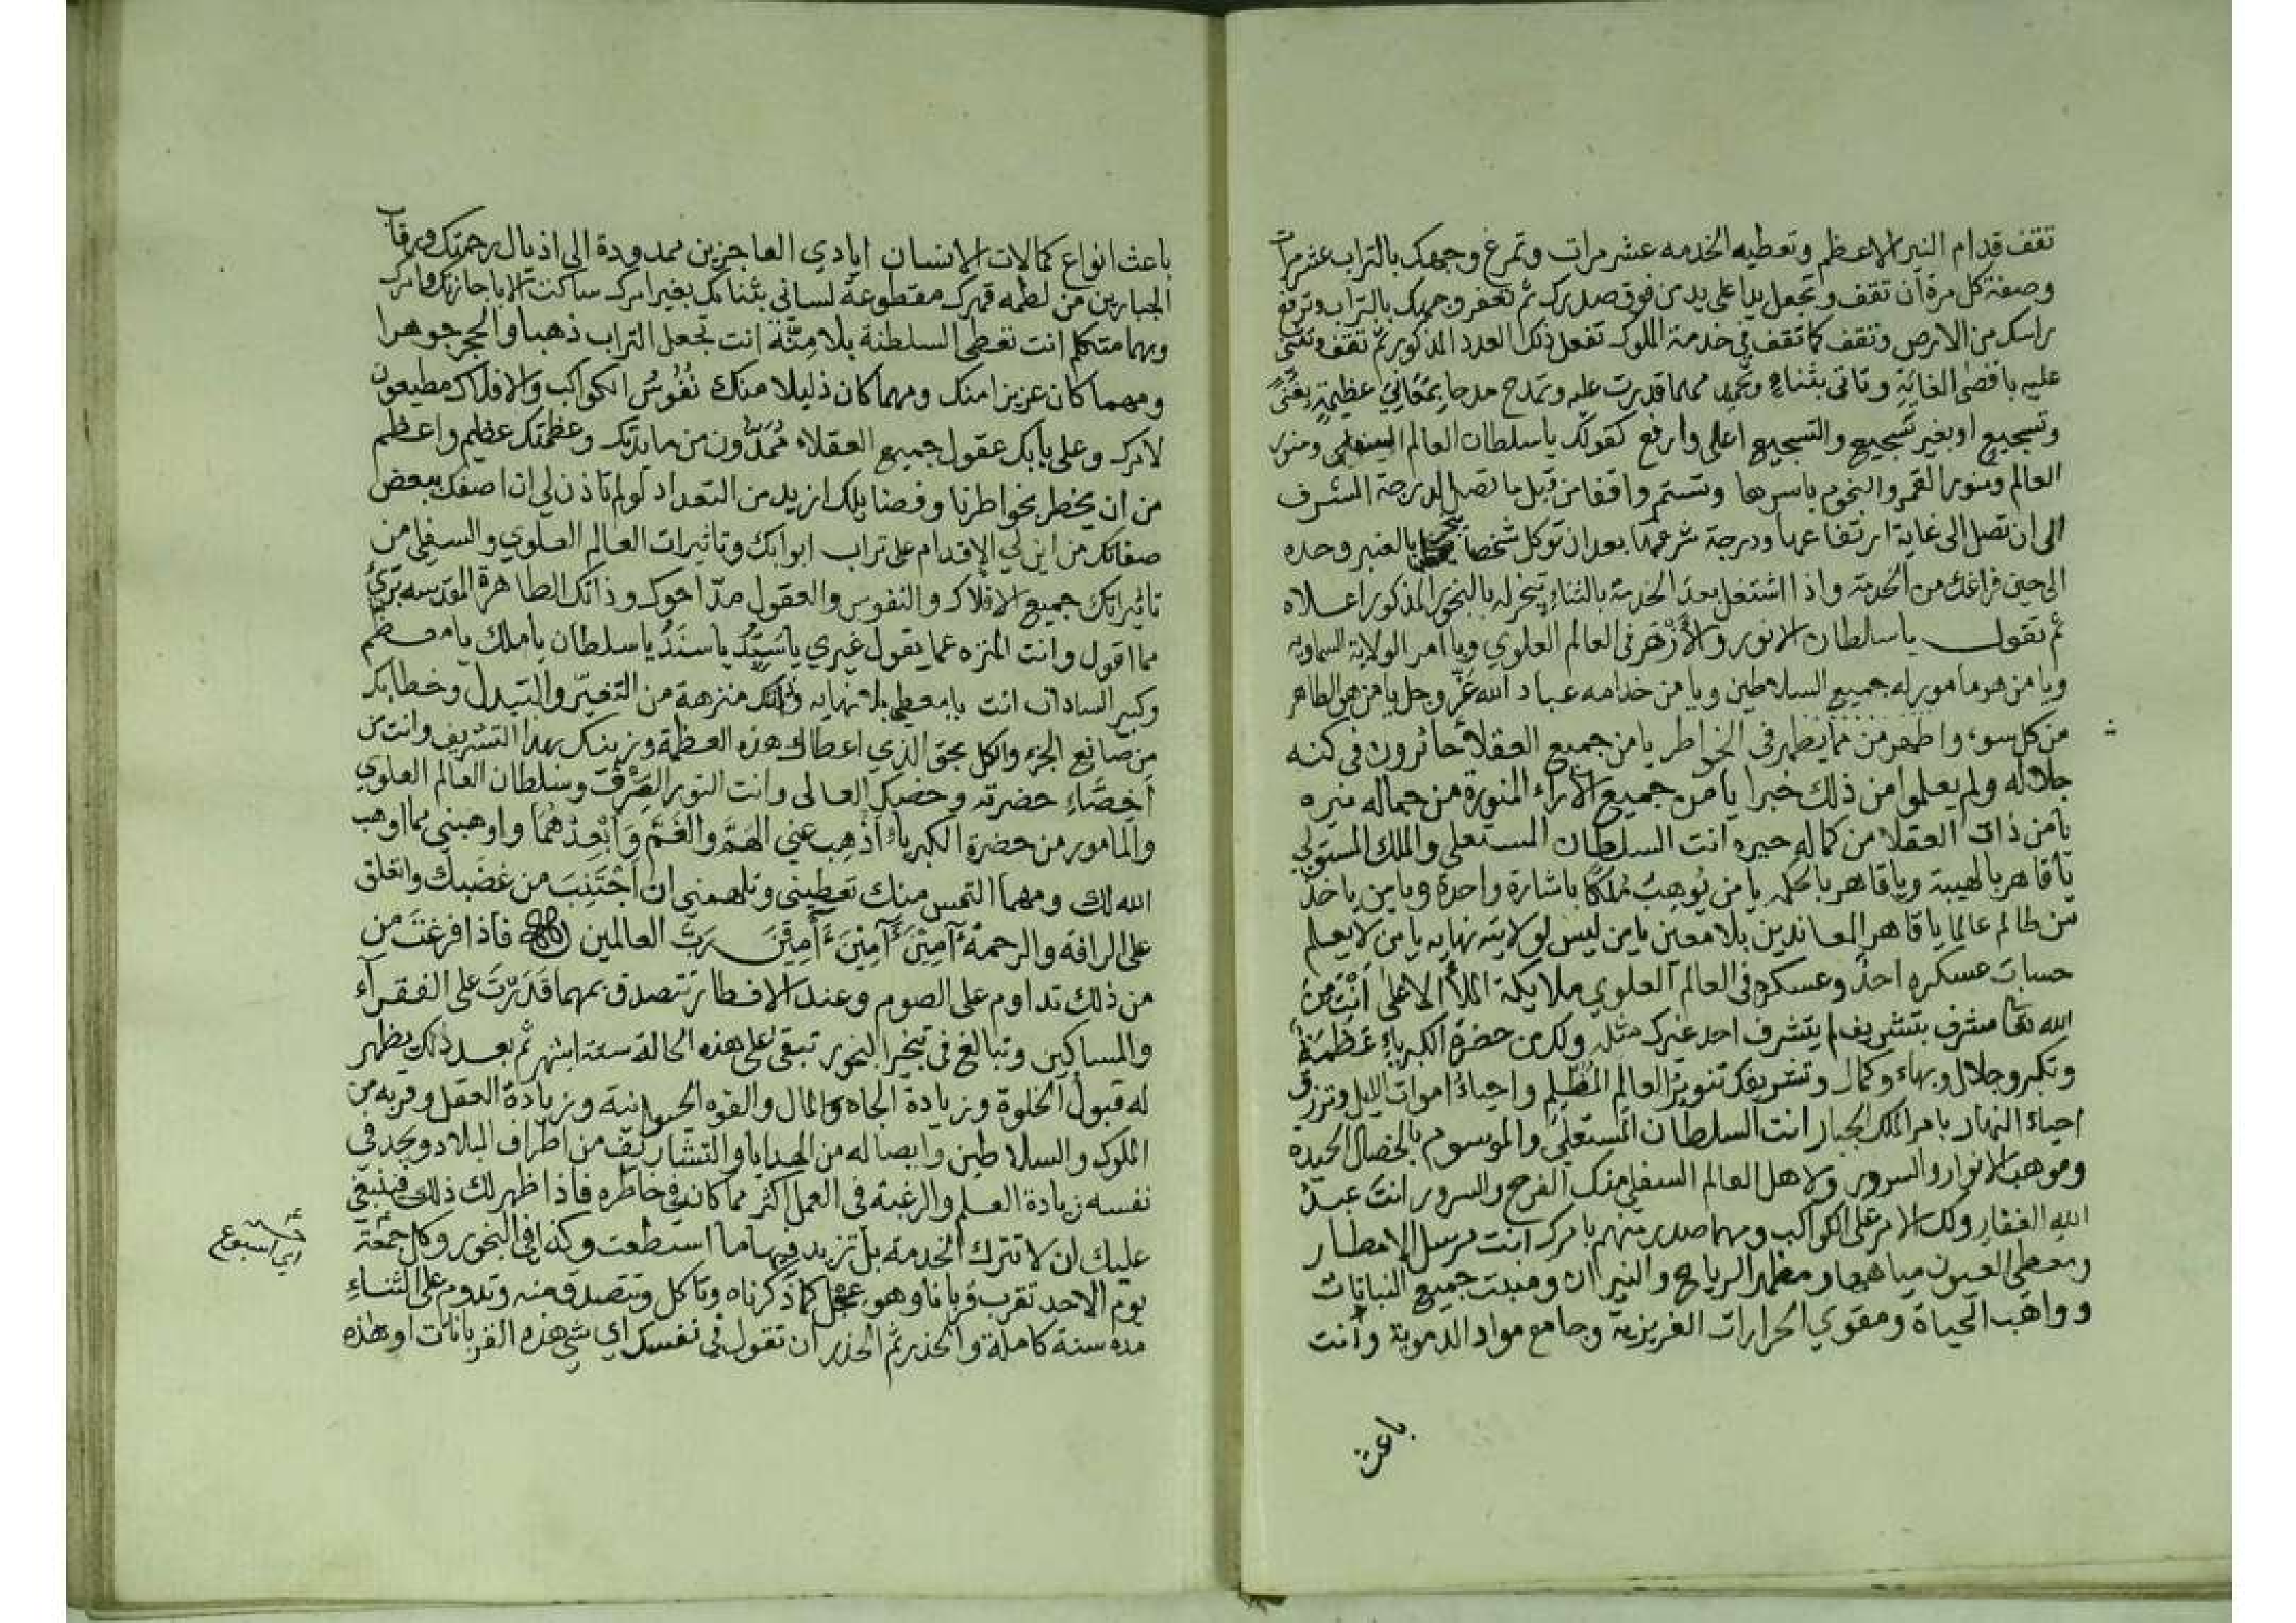 تقف قدام النير الاعظم وتعطيه الخدمه عشر مرات وتمرغ وجهك بالتراب عشر مرات
وصفة كل مرة ان تقف وتجعل يدا على يد من فوق صدرك ثم تعفر وجهك بالتراب وترفع
راسك من الارض وتقف كما تقف في خدمة الملوك تفعل ذلك العدد المذكور ثم تقف وتثني
عليه باقصى الغاية وتاتي بثناء وتحميد مهما قدرت عليه وتمدح مدحا بمعاني عظيمة
وتسجيع او بغير تسجيع والتسجيع اعلى وارفع كقولك ياسلطان العالم السفلي ومنور
العالم ومنور القمر والنجوم باسرها وتستمر واقفا من قبل ما تصل لدرجة الشرف
الى ان تصل الى غاية ارتفاعها ودرجة شرفها بعد ان توكل شخصا يبخر بالعنبر وحده
الى حين فراغك من الخدمة واذا اشتغل بعد الخدمة بالثناء يبخر له بالبخور المذكور اعلاه
ثم تقول ياسلطان الانور والأزهر في العالم العلوي ويا امر الولاية السماويه
ويا من هو مامور له جميع السلاطين ويا من خدامه عباد الله عز وجل يا من هو الطاهر
من كل سوء واطهر من ما يظهر في الخواطر يا من جميع العقلاء حائرون في كنه
جلاله ولم يعلموا من ذلك خبرا يا من جميع الأراء المنورة من جماله منيره
يا من ذات العقلا من كماله حيره انت السلطان المستعلي والملك المستولي
يا قاهر بالهيبة ويا قاهر بالحكمه يا من يوهب ملكا باشارة واحدة ويا من ياخذ
من ظالم عالما يا قاهر المعاندين بلا معين يا من ليس لولايته نهايه يا من لا يعلم
حساب عسكره احد وعسكره في العالم العلوي ملايكة الملأ الاعلى انت من
الله تعا مشرف بتشريف لم يتشرف احد غيرك مثله ولك من حضرة الكبرياء عظمة
وتكبر وجلال وبهاء وكمال وتشريفك تنوير العالم المظلم واحياء اموات الليل وترزق
احياء النهار بامر الملك الجبار انت السلطان المستعلي والموسوم بالخصال الحميده
وموهب الانوار والسرور ولاهل العالم السفلي منك الفرح والسرور انت عبد
الله الغفار ولك الامر على الكواكب ومهما صدر منهم بامرك انت مرسل الامطار
ومعطي العيون مياهها ومظهر الرياح والنيران ومنبت جميع النباتات
وواهب الحياة ومقوي الحرارات الغريزية وجامع مواد الدموية وأنت
باعث
باعث انواع كمالات الانسان ايادي العاجزين ممدودة الى اذيال رحمتك ورقاب
الجبارين من لطمه قهرك مقطوعة لساني بثنائك بغير امرك ساكت الا باجازتك وامرك
ومهما متكلم انت تعطي السلطنة بلا منّة انت تجعل التراب ذهبا والحجر جوهرا
ومهما كان عزيزا منك ومهما كان ذليلا منك نفوس الكواكب والافلاك مطيعون
لامرك وعلى بابك عقول جميع العقلاء ممدون من مائدتك وعظمتك عظيم واعظم
من ان يخطر بخواطرنا وفضايلك ازيد من التعداد لو لم تاذن لي ان اصفك ببعض
صفاتك من اين لي الاقدام على تراب ابوابك وتاثيرات العالم العلوي والسفلي من
تاثيراتك جميع الافلاك والنفوس والعقول مداحوك وذاتك الطاهرة المقدسه بري
مما اقول وانت المنزه عما يقول غيري يا سيد يا سند يا سلطان يا ملك يا معظم
وكبير السادات انت يا معطي بلا نهايه وذاتك منزهة من التغير والتبدل وخطابك
من صانع الجزء والكل بحق الذي اعطاك هذه العظمة وزينك بهذا التشريف وانت من
أخصّاء حضرته وخصك العالي وانت النور الصرف وسلطان العالم العلوي
والمامور من حضرة الكبرياء اذهب عني الهم والغم وابعدهما واوهبني مما اوهب
الله لك ومهما التمس منك تعطيني وتلهمني ان اجتنب من غضبك واتعلق
على الرافة والرحمة آمين آمين آمين رب العالمين فاذا فرغت من
من ذلك تداوم على الصوم وعند الافطار تتصدق بمهما قدرت على الفقرآء
والمساكين وتبالغ في تبخير البخور تبقى على هذه الحالة ستة اشهر ثم بعد ذلك يظهر
له قبول الخلوة وزيادة الجاه والمال والقوه الحيوانية وزيادة العقل وقربه من
الملوك والسلاطين وايصاله من الهدايا والتشاريف من اطراف البلاد ويجد في
نفسه زيادة العلم والرغبة في العمل اكثر مما كان في خاطره فاذا ظهر لك ذلك فينبغي
عليك ان لا تترك الخدمة بل تزيد فيها ما استطعت وكذا في البخور وكل جمعة
اي اسبوع
يوم الاحد تقرب قربانا وهو عجل كما ذكرناه وتاكل وتتصدق منه وتدوم على الثناء
مده سنة كاملة والحذر ثم الحذر ان تقول في نفسك اي شي هذه القربانات او هذه